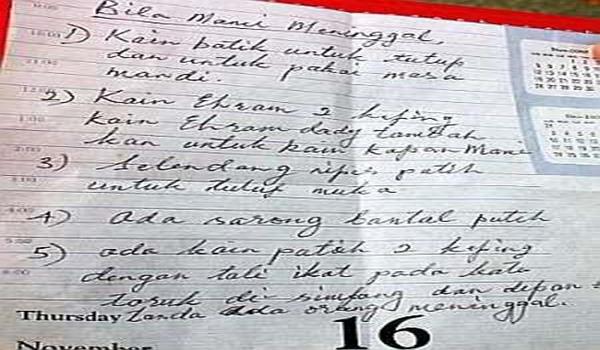 Bila Mami Meninggal,
1) Kain batik untuk tutup
dan untuk pakai masa
mandi.
2) Kain Ehram 2 keping
Kain Ehram dady tambah
kan untuk kain kapan Mami
3) Selendang nipis putih
untuk tutup muka
4) Ada sarong bantal putih
5) ada kain putih 2 keping
dengan tali ikat pada
di simpang dan depan
tanda ada orang meninggal.
Thursday
16
November